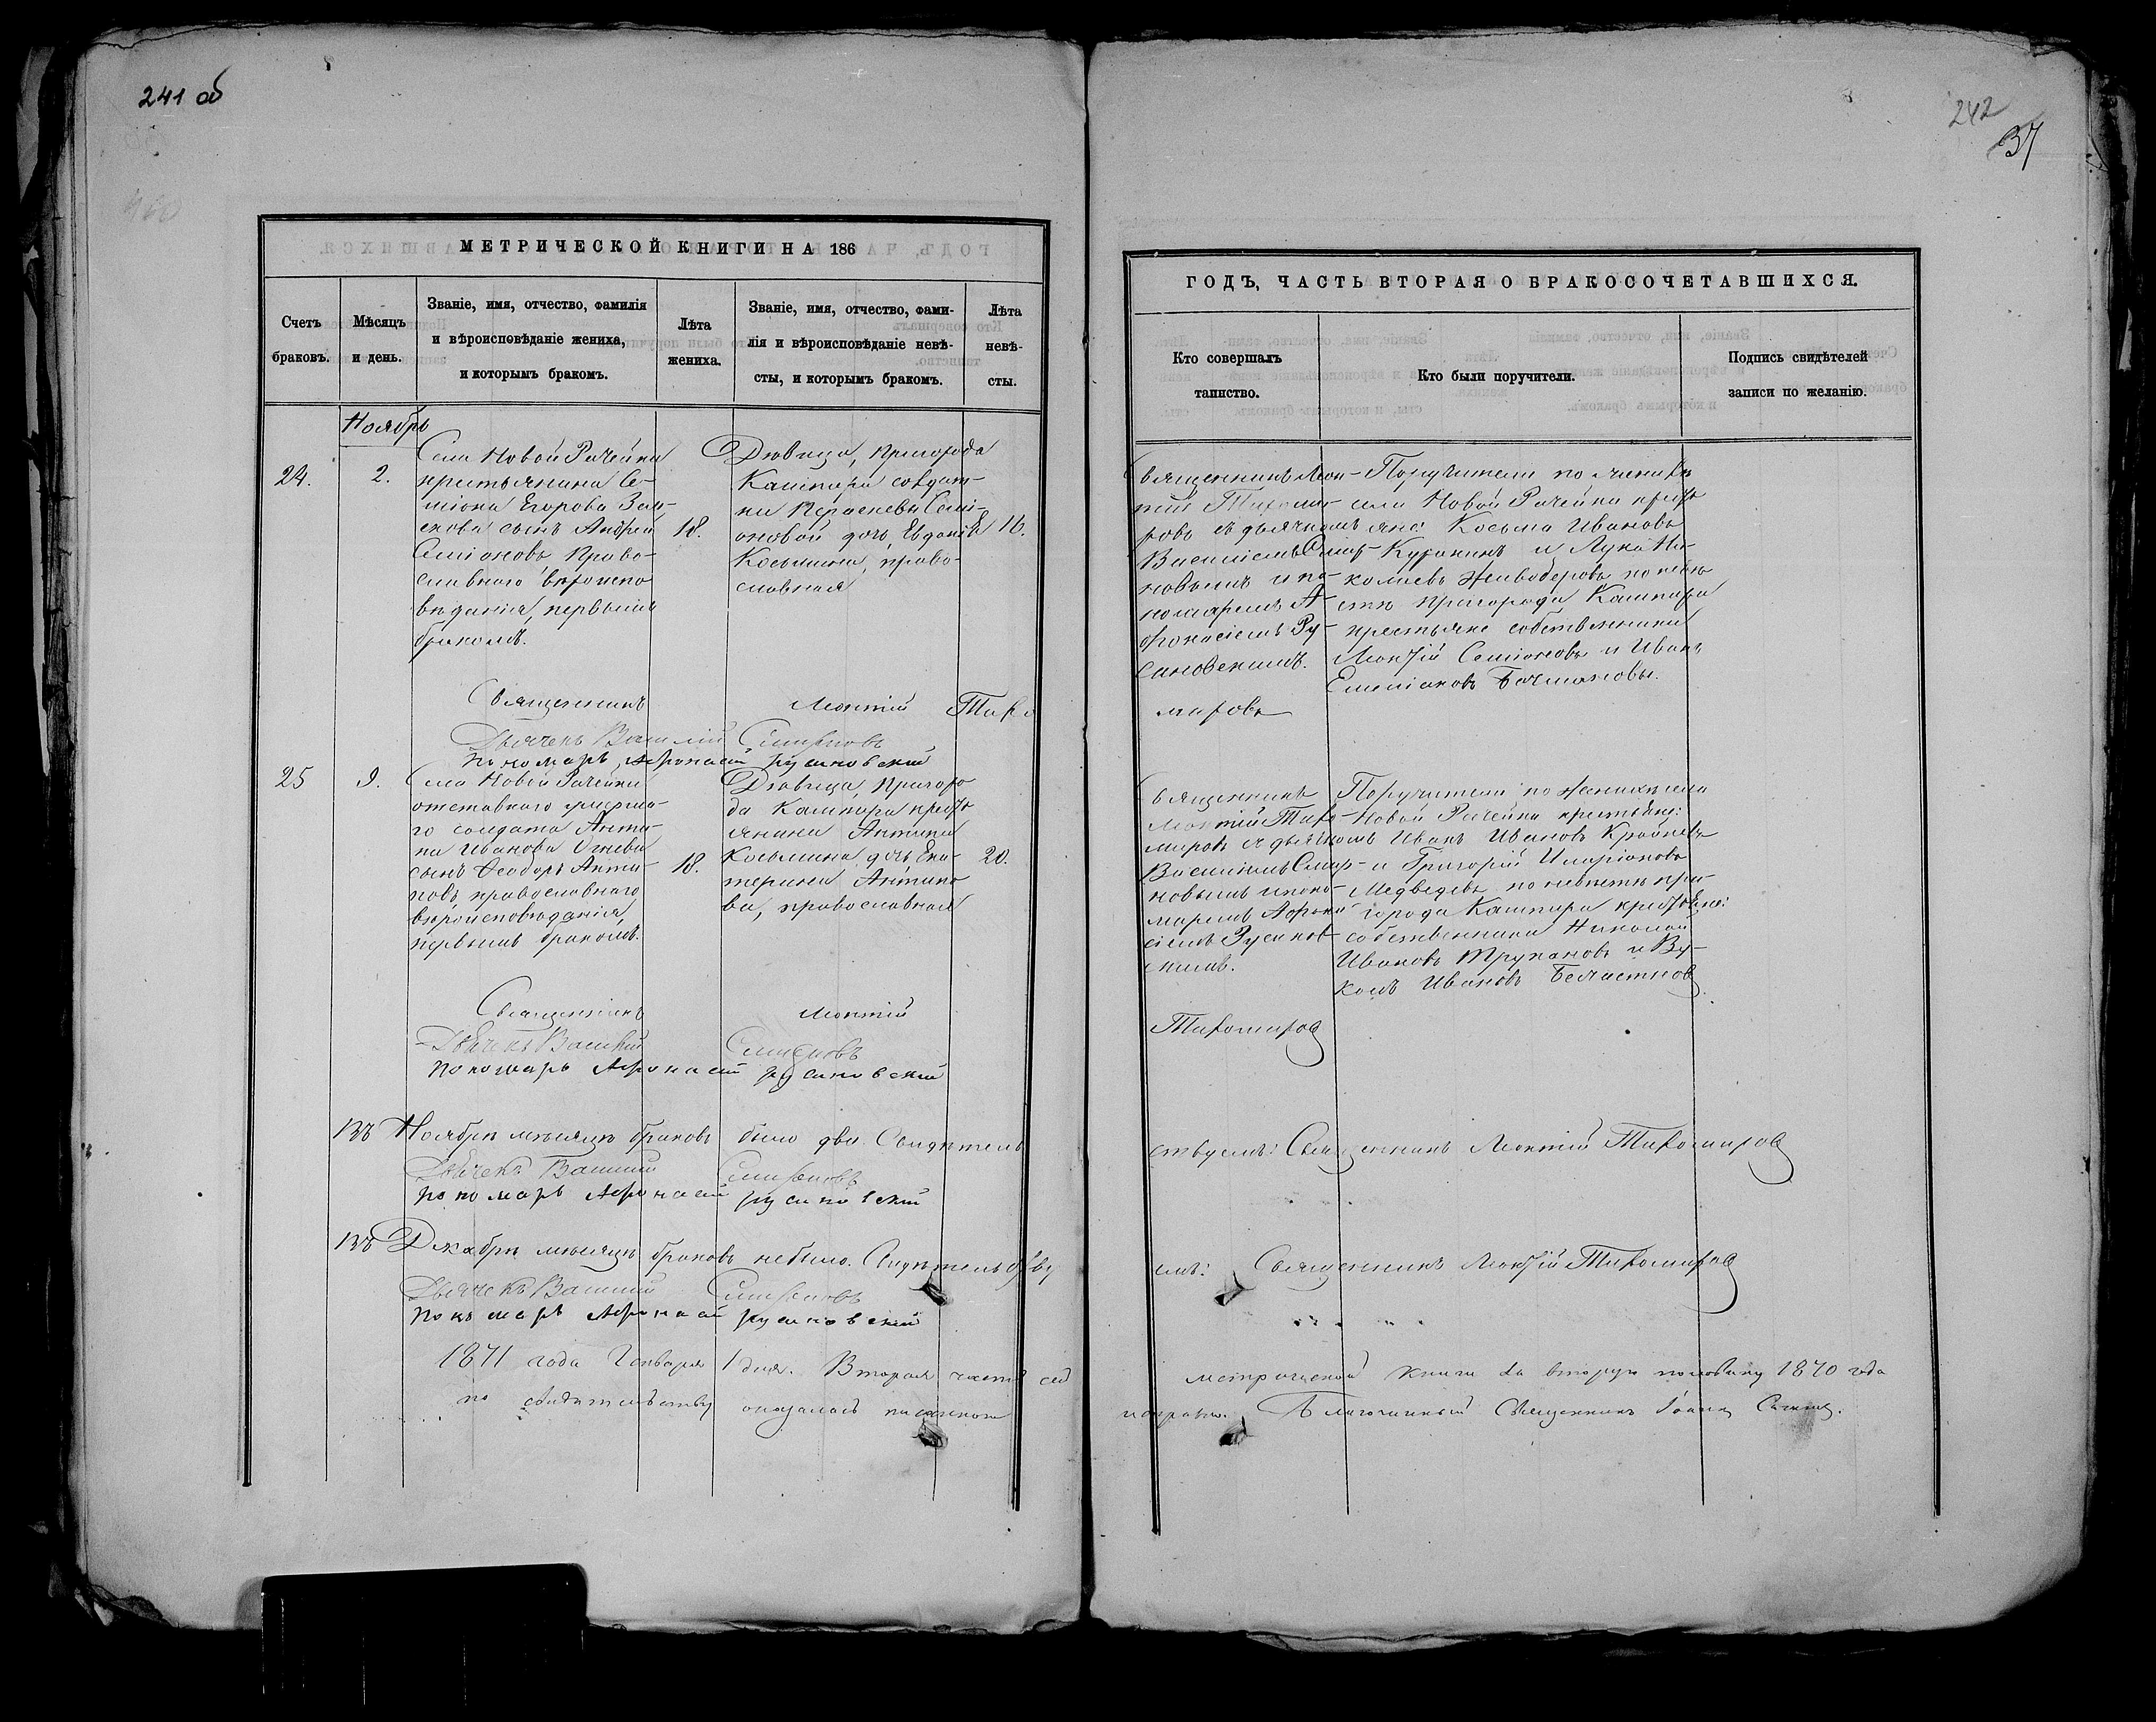 241 об
242
37
МЕТРИЧЕСКОЙ КНИГИ НА 186
Счетъ браковъ.
Мѣсяцъ и день.
Званіе, имя, отчество, фамилія
и вѣроисповѣданіе жениха,
и которымъ бракомъ.
Лѣта жениха.
Званіе, имя, отчество, фами-
лія и вѣроисповѣданіе невѣ-
сты, и которымъ бракомъ.
Лѣта невѣ-
сты.
Ноябрь
24.
2.
Села Новой Рачейки
крестьянина Се-
міона Егорова
сынъ Андрей
Семіоновъ право-
славнаго вѣроиспо
вѣданія, первымъ
бракомъ.
18.
Дѣвица, пригорода
Кашпира солдат-
ки Параскевы Семі-
оновой дочь, Евдокія
Косьмина, право-
славная
16.
Священникъ Леонтій Тихо
Дьячекъ Василій Смирновъ
пономарь Афонасій Русановскій
25
9.
Села Новой Рачейки
отставнаго умерша-
го солдата Анти-
па Иванова Огнева
сынъ Ѳеодоръ Анти-
повъ, православнаго
вѣроисповѣданія,
первымъ бракомъ.
18.
Дѣвица, пригоро
да Кашпира кресть
янина Антипа
Косьмина дочь Ека-
терина Антипо
ва, православная
20.
Священникъ Леонтій
Дьячекъ Василій Смирновъ
пономарь Афонасій Русановскій
Въ Ноябрѣ мѣсяцѣ браковъ было два. Свидѣтель
Дьячекъ Василий Смирновъ
пономарь Афонасий Русановский
Въ Декабрѣ мѣсяцѣ браковъ небыло. Свидѣтельству
Дьячекъ Василий Смирновъ
пономарь Афонасий Русановский
1871 года Генваря 1 дня. Вторая часть сей
по свидѣтельству оказалась писанною
ГОДЪ, ЧАСТЬ ВТОРАЯ О БРАКОСОЧЕТАВШИХСЯ.
Кто совершалъ таинство.
Кто были поручители.
Подпись свидѣтелей
записи по желанію.
Священникъ Леон-
тій Тихоми-
ровъ съ дьячкомъ
Василіемъ Смир-
новымъ и по-
номаремъ А-
фонасіемъ Ру-
сановскимъ.
Поручители по женихѣ
села Новой Рачейки кресть
яне: Косьма Ивановъ
Куракинъ и Лука Ни-
колаевъ Живодеровъ по невѣ
стѣ пригорода Кашпира
крестьяне собственники
Леонтій Семіоновъ и Иванъ
Емеліановъ Бачмановы.
мировъ
Священникъ
Леонтій Тихо-
мировъ съ дьячкомъ
Василіемъ Смир-
новымъ и поно-
маремъ Афона-
сіемъ Русанов-
скимъ.
Поручители по женихѣ села
Новой Рачейки крестьяне:
Иванъ Ивановъ Крайневъ
и Григорій Иларіоновъ
Медведевъ по невѣстѣ при-
города Кашпира крестьяне:
собственники Николай
Ивановъ Трухановъ и Ву-
колъ Ивановъ
Тихомировъ
ствуемъ: Священникъ Леонтій Тихомировъ
емъ: Священникъ Леонтій Тихомировъ
метрической книги за вторую половину 1870 года
исправно. Благочинный Священникъ Іоаннъ